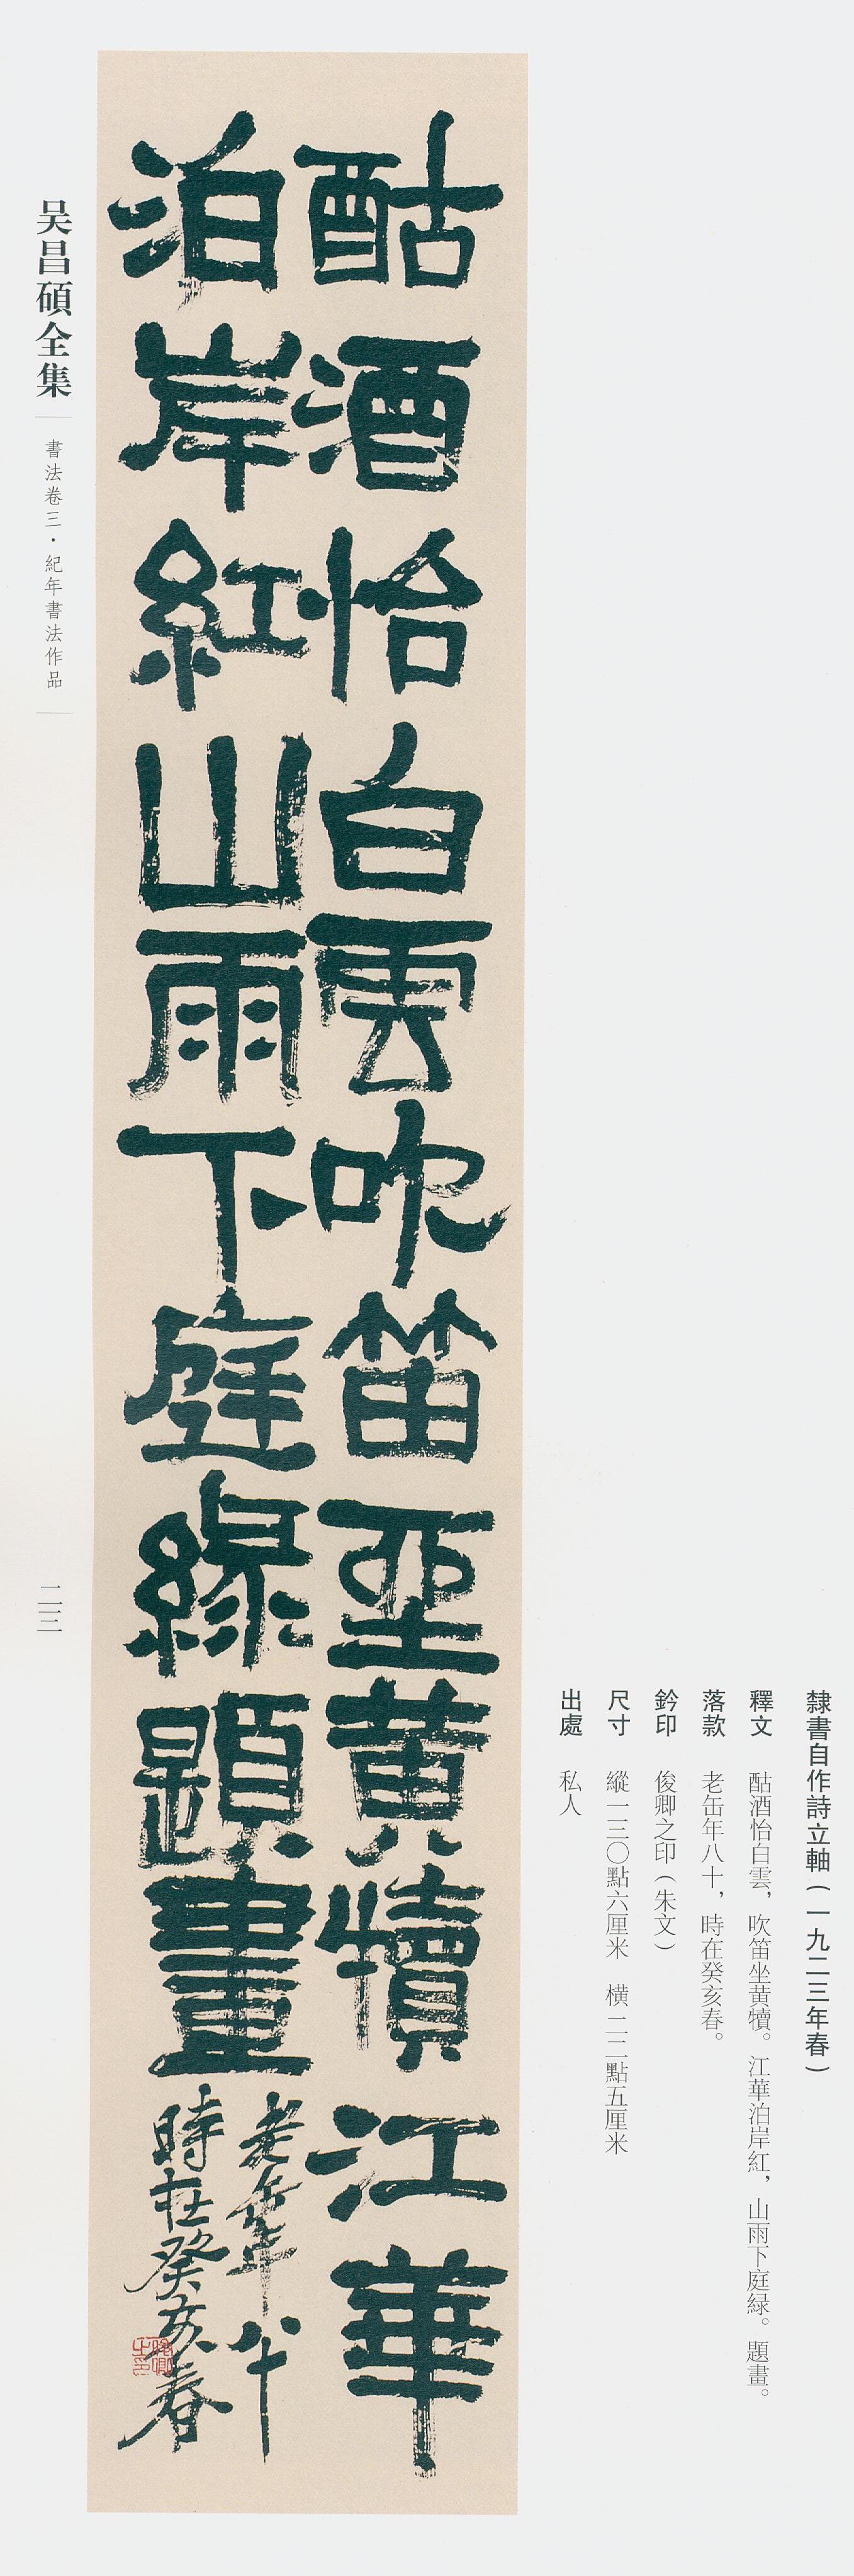 隸書自作詩立軸（一九二三年春）
釋文　酤酒怡白雲，吹笛坐黃犢。江華泊岸紅，山雨下庭緑。題畫。
落款　老缶年八十，時在癸亥春。
鈐印　俊卿之印（朱文）
尺寸　縱一三〇點六厘米　橫二二點五厘米
出處　私人
酤酒怡白雲吹笛坐黃犢江華
泊岸紅山雨下庭綠題畫
老缶年八十
時在癸亥春
俊卿之印
吴昌碩全集
書法卷三·紀年書法作品